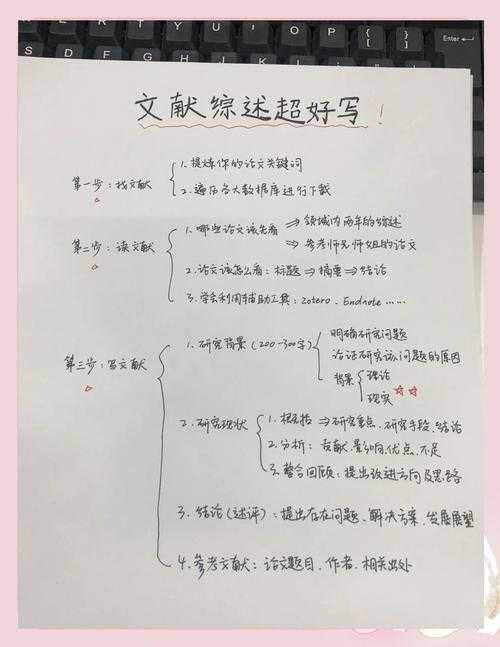 Y U I O P { [ } ] Enter
S D F G H J K L
文献综述超好写!
第一步:找文献
1.提炼你的论文关键词
2.遍历各大数据库进行下载
第二步:读文献
1.哪些论文该先看 ⇒ 领域内两年的综述
⇒ 参考师兄师姐的论文
2.论文该怎么看:标题⇒摘要⇒结论
3.学会利用辅助工具:zotero、Endnote……
第三步:写文献
1.研究背景(200-300字)
明确研究问题
论证研究该问题的原因
背景
理论
现实 ☆☆
2.研究现状
1.概括⇒研究重点、研究手段、结论
2.分析:贡献、影响、优点、不足
3.整合回顾:提出改进方向及思路
3.结论(述评):提出存在问题、解决方案、发展展望
4.参考文献:论文题目、作者、相关出处